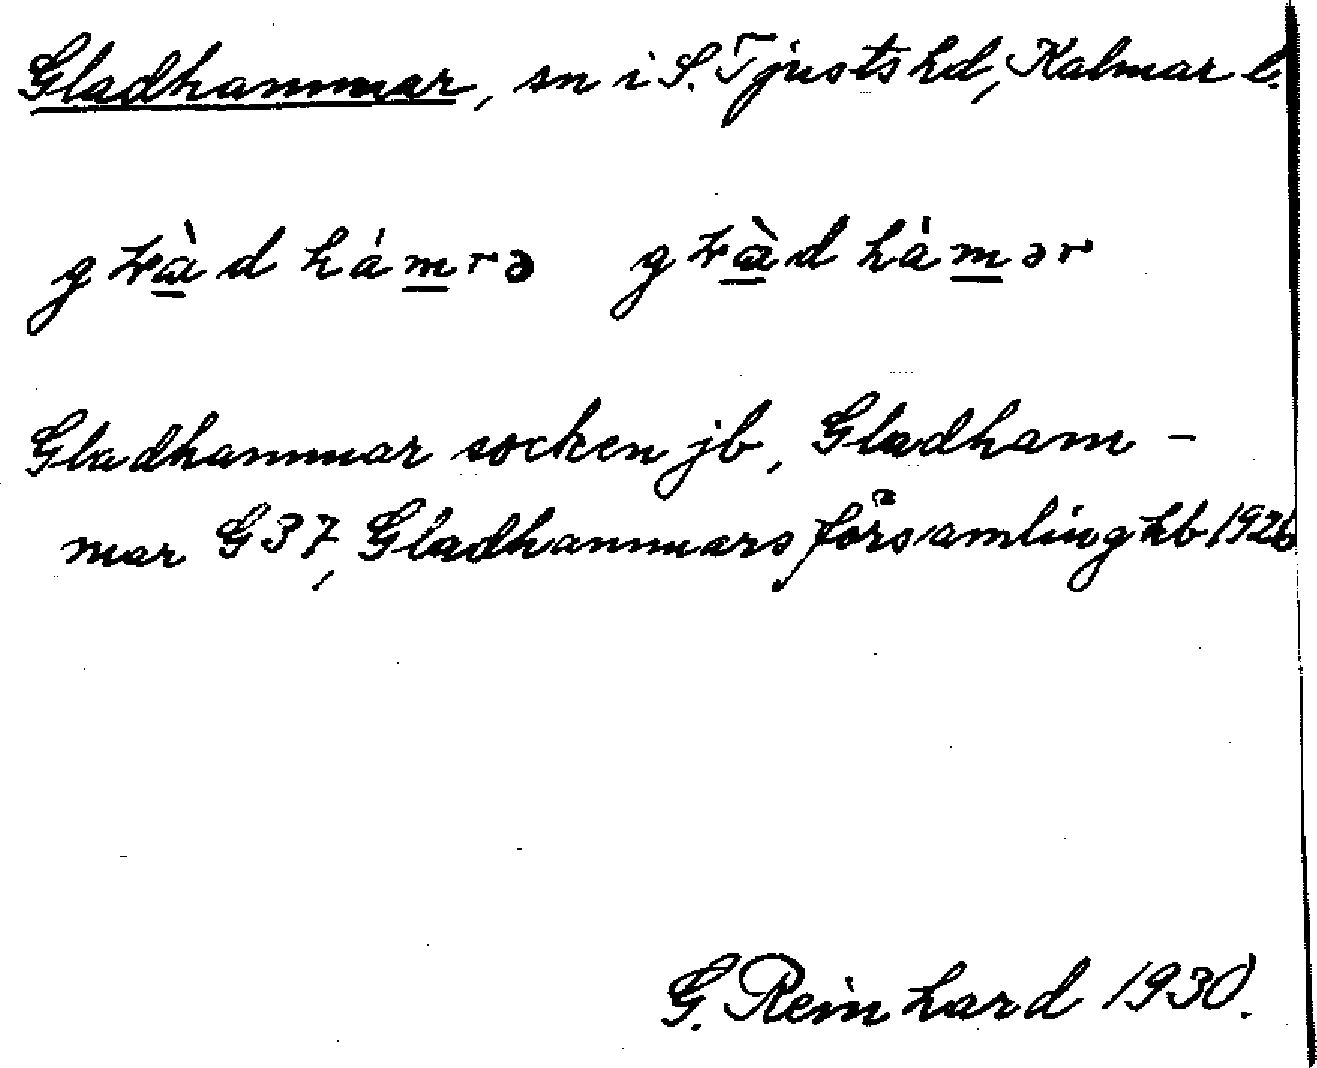 Gladhammar, sn i S. Tjusts hd, Kalmar l.
gɫàdhámrə gɫàdhámər
Gladhammar socken jb, Gladham-
mar G37, Gladhammars församling kb 1926
G. Reinhard 1930.